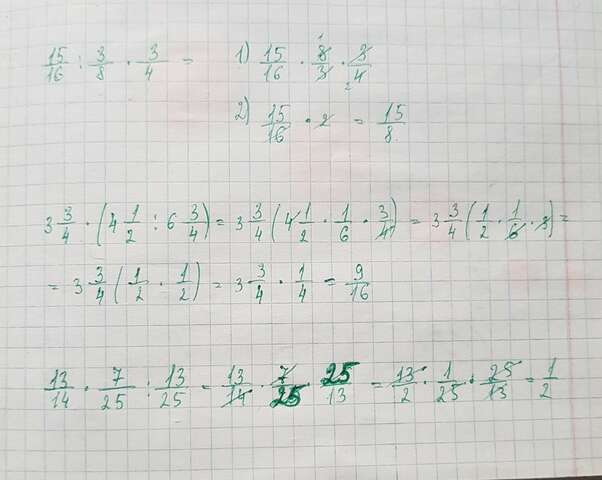 15/16 : 3/8 · 3/4 = 1) 15/16 · 8/3 · 3/4
2) 15/16 · 2 = 15/8
3 3/4 · (4 1/2 : 6 3/4) = 3 3/4 (4 1/2 · 1/6 · 3/4) = 3 3/4 (1/2 · 1/6 · 3) =
= 3 3/4 (1/2 · 1/2) = 3 3/4 · 1/4 = 9/16
13/14 · 7/25 : 13/25 = 13/14 · 7/25 · 25/13 = 13/2 · 1/25 · 25/13 = 1/2